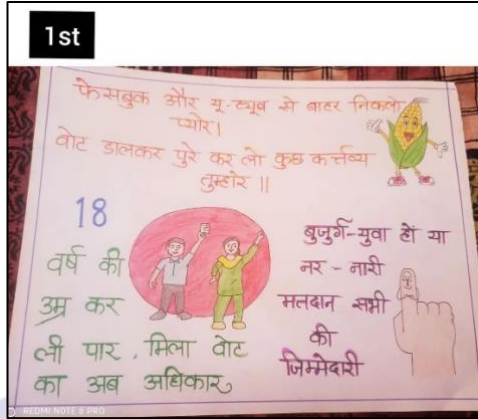 1st
फेसबुक और यू-ट्यूब से बाहर निकलो
प्यारे।
वोट डालकर पुरे कर लो कुछ कर्त्तव्य
तुम्हारे ॥
18
वर्ष की
उम्र कर
ली पार, मिला वोट
का अब अधिकार
बुजुर्ग-युवा हों या
नर - नारी
मतदान सभी
की
जिम्मेदारी
REDMI NOTE 8 PRO